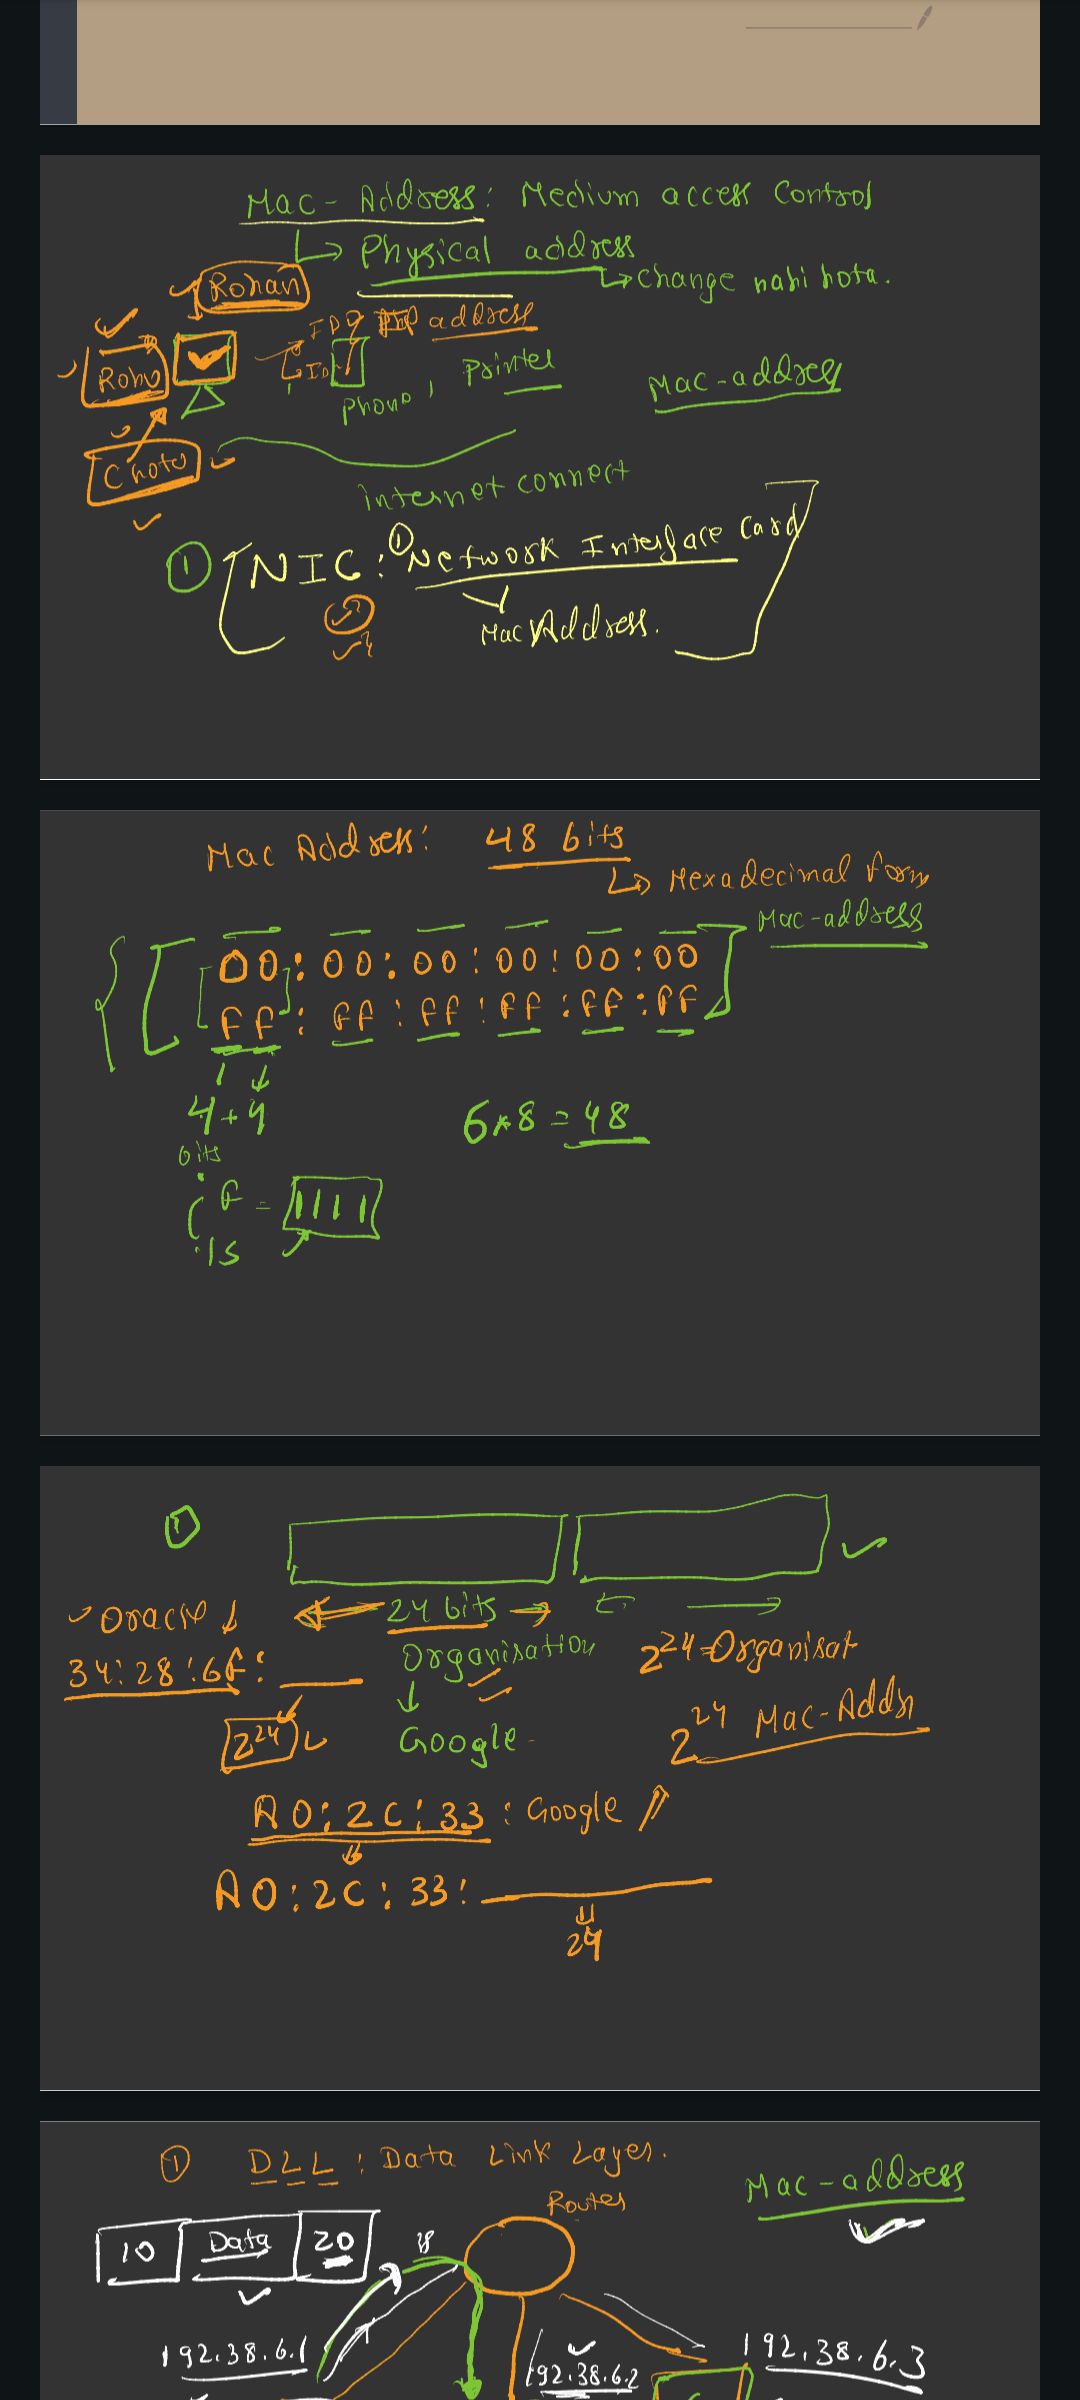 Mac - Address: Medium access Control
↳ Physical address
↳ change nahi hota.
Rohan
address
Rohu
Phone, Printer
Mac-address
Chotu
internet connect
① NIC: ① Network Interface Card
Mac Address.
Mac Address: 48 bits
↳ Hexadecimal form
Mac-address
00:00:00:00:00:00
FF:FF:FF:FF:FF:FF
4+4
bits
6*8=48
F = 1111
15
①
Oracle
24 bits
34:28:6F:
Organisation
2^24 = Organisat
2^24
Google
2^24 Mac-Add
A0:2C:33: Google
A0:2C:33:
24
① DLL: Data Link Layer.
Mac-address
Router
10 Data 20
192.38.6.1
192.38.6.2
192.38.6.3